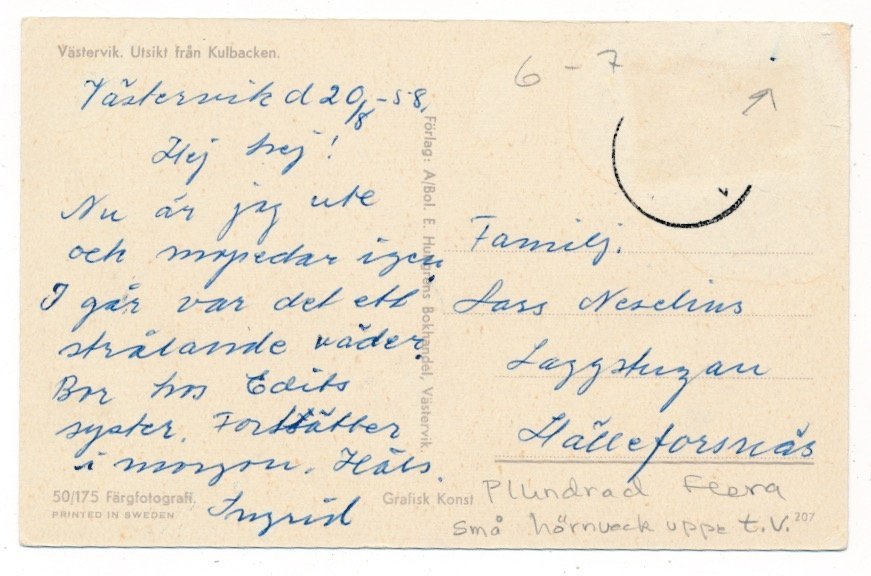 Västervik. Utsikt från Kulbacken.
Västervik d 20/8 -58.
Hej hej!
Nu är jag ute
och mopedar igen
I går var det ett
strålande väder.
Bor hos Edits
syster. Fortsätter
i morgon. Häls.
Ingrid
50/175 Färgfotografi.
PRINTED IN SWEDEN
Förlag: A/Bol. E. Hultgrens Bokhandel, Västervik.
Grafisk Konst
6 - 7
Familj.
Lars Neselius
Laggstugan
Hälleforsnäs
Plundrad Flera
små hörnveck uppe t.v.
207